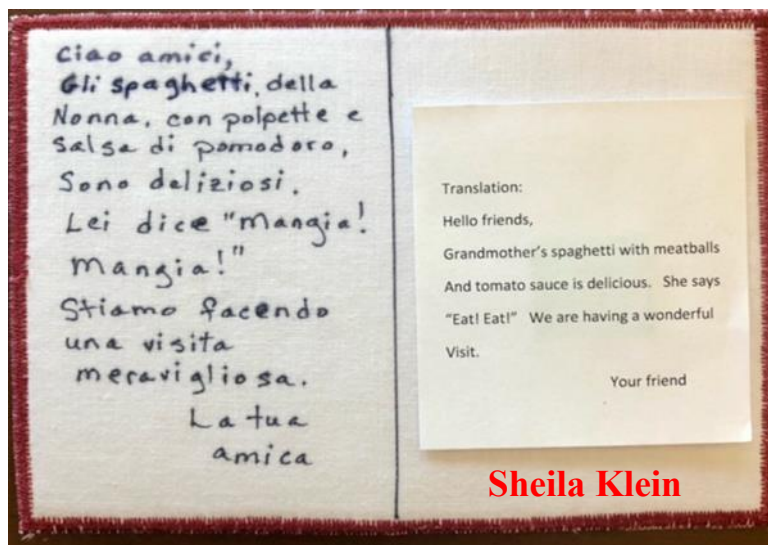 Ciao amici,
Gli spaghetti, della
Nonna, con polpette e
Salsa di pomodoro,
Sono deliziosi.
Lei dice "Mangia!
Mangia!"
Stiamo facendo
una visita
meravigliosa.
La tua
amica
Translation:
Hello friends,
Grandmother's spaghetti with meatballs
And tomato sauce is delicious. She says
"Eat! Eat!" We are having a wonderful
Visit.
Your friend
Sheila Klein